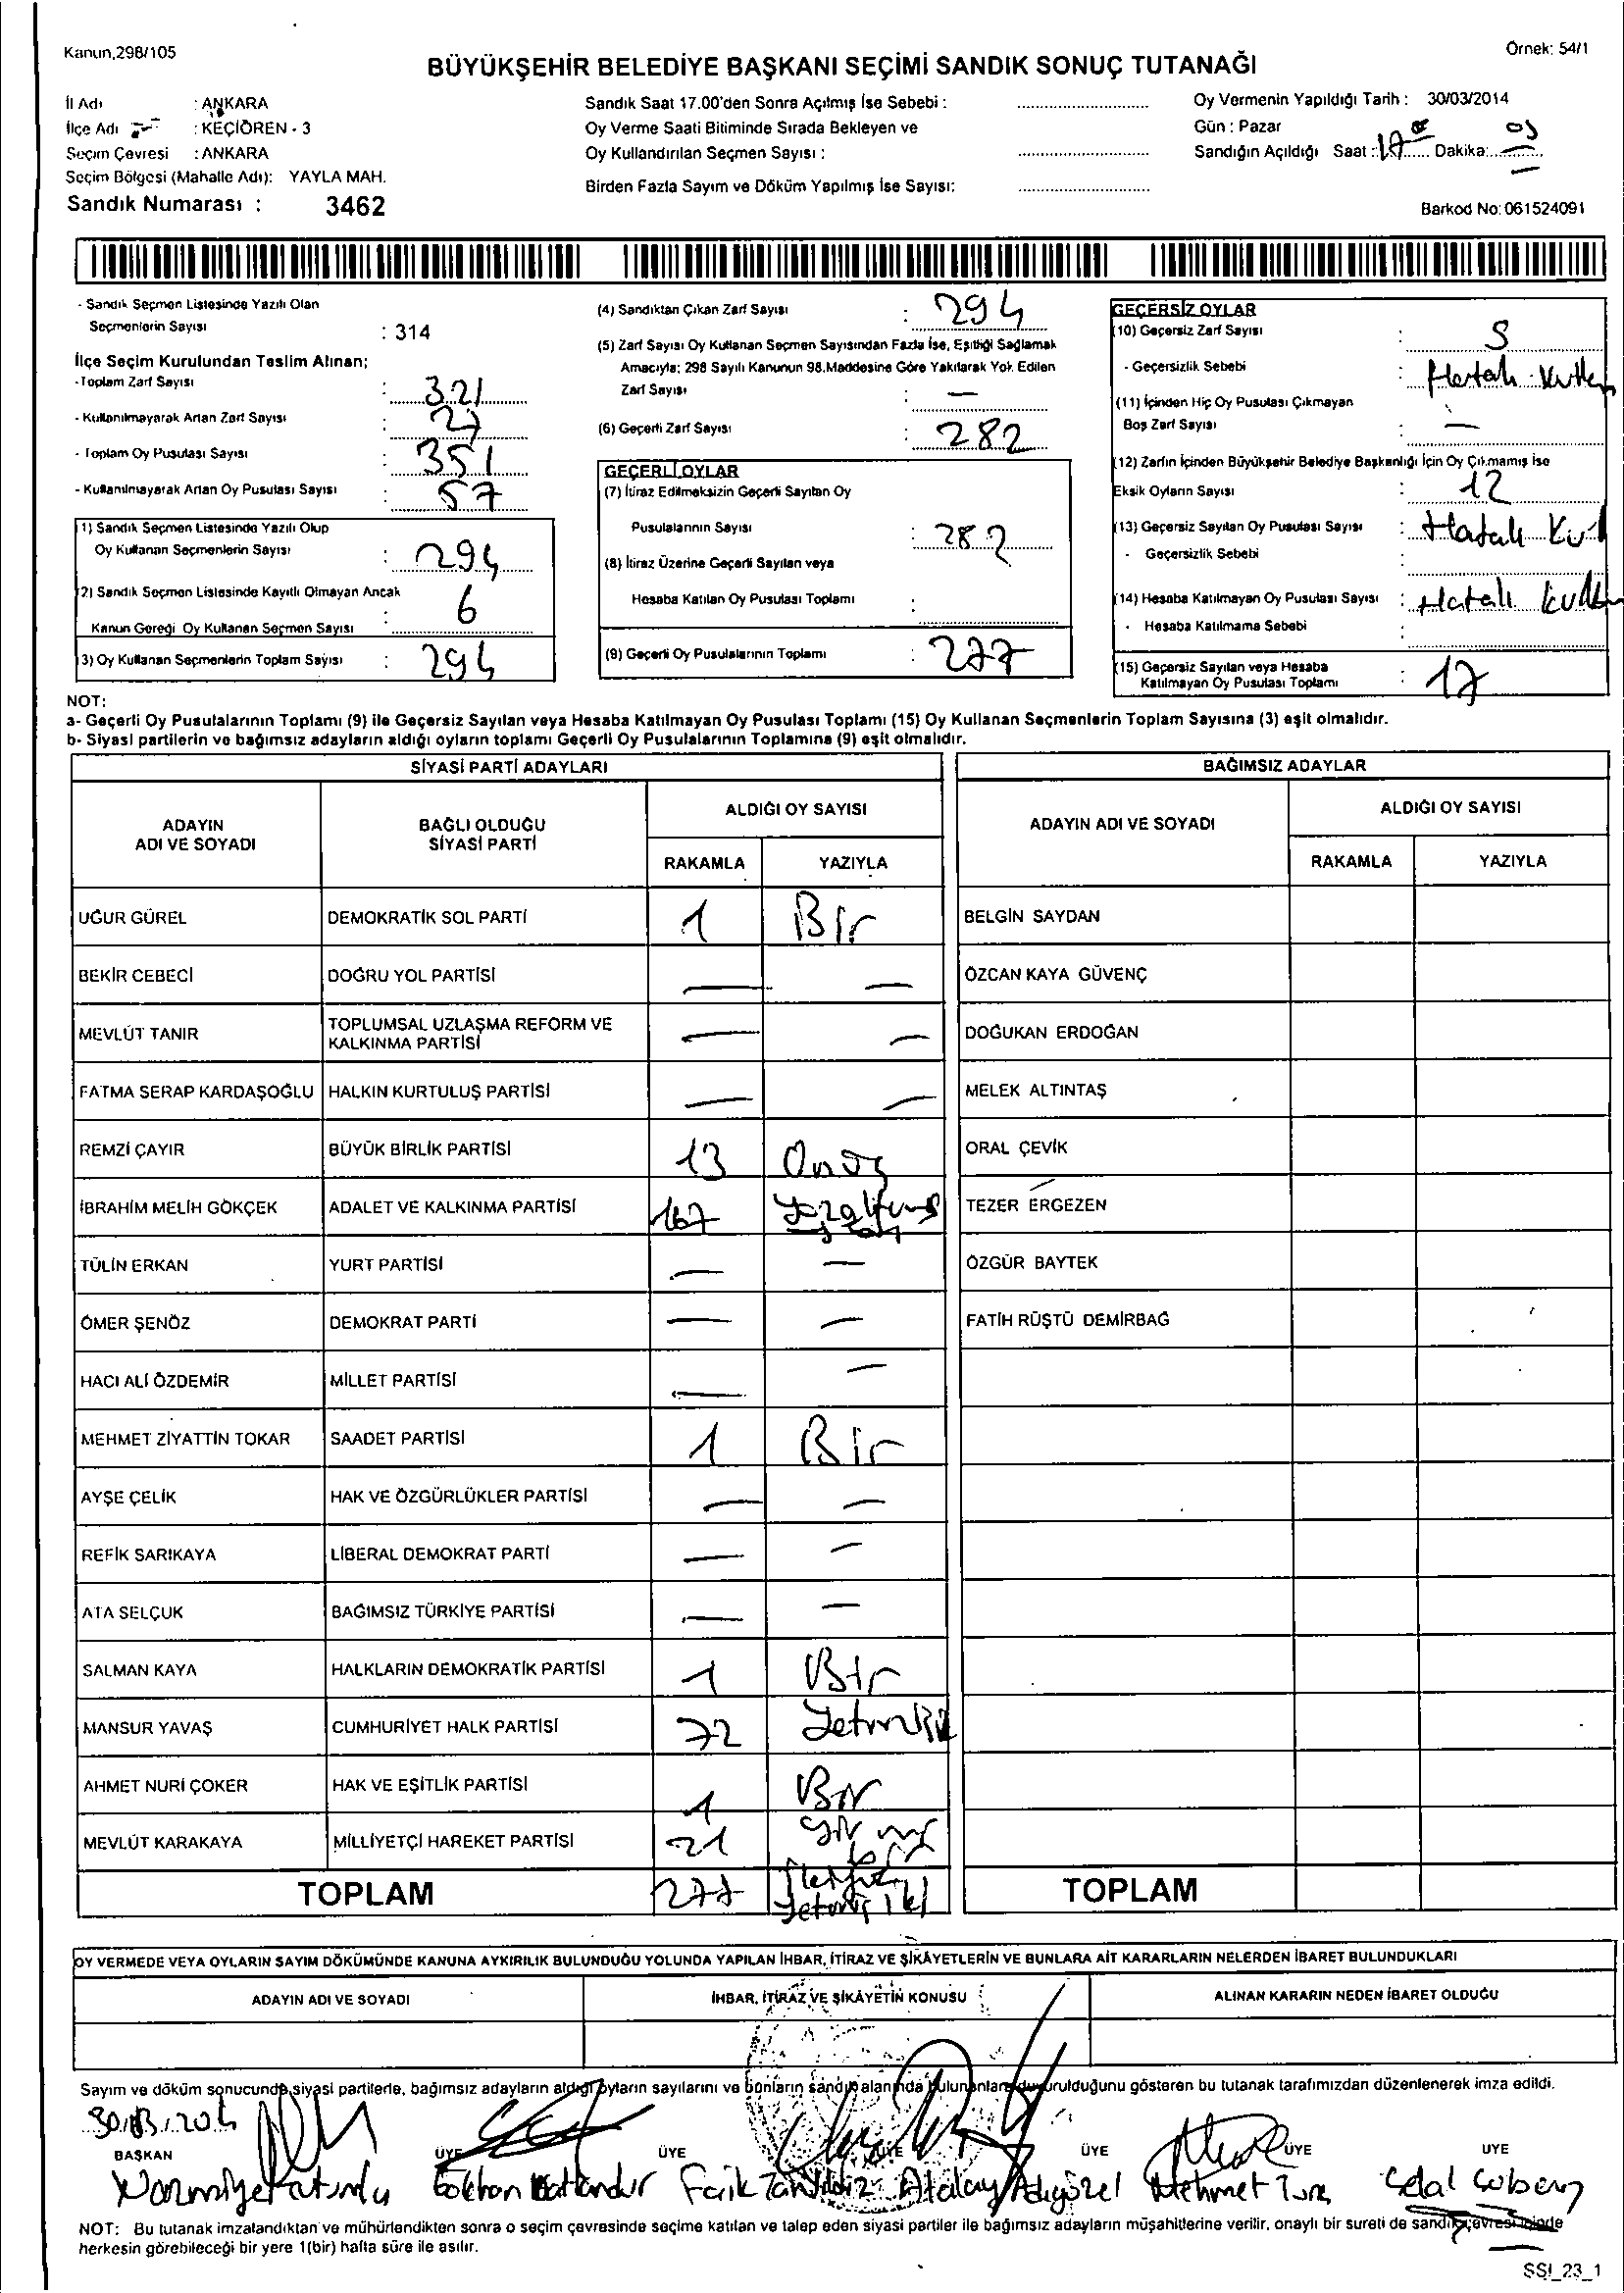 Kanun,298/105
Örnek: 54/1
BÜYÜKŞEHİR BELEDİYE BAŞKANI SEÇİMİ SANDIK SONUÇ TUTANAĞI
İl Adı : ANKARA
İlçe Adı : KEÇİÖREN - 3
Seçim Çevresi : ANKARA
Seçim Bölgesi (Mahalle Adı): YAYLA MAH.
Sandık Numarası : 3462
Sandık Saat 17.00'den Sonra Açılmış İse Sebebi :
Oy Verme Saati Bitiminde Sırada Bekleyen ve
Oy Kullandırılan Seçmen Sayısı :
Birden Fazla Sayım ve Döküm Yapılmış İse Sayısı:
Oy Vermenin Yapıldığı Tarih : 30/03/2014
Gün : Pazar
Sandığın Açıldığı Saat : 17 Dakika:
Barkod No: 061524091
- Sandık Seçmen Listesinde Yazılı Olan
Seçmenlerin Sayısı : 314
İlçe Seçim Kurulundan Teslim Alınan;
- Toplam Zarf Sayısı : 321
- Kullanılmayarak Artan Zarf Sayısı : 27
- Toplam Oy Pusulası Sayısı : 351
- Kullanılmayarak Artan Oy Pusulası Sayısı : 57
1) Sandık Seçmen Listesinde Yazılı Olup
Oy Kullanan Seçmenlerin Sayısı : 294
2) Sandık Seçmen Listesinde Kayıtlı Olmayan Ancak
Kanun Gereği Oy Kullanan Seçmen Sayısı : 6
3) Oy Kullanan Seçmenlerin Toplam Sayısı : 294
(4) Sandıktan Çıkan Zarf Sayısı : 294
(5) Zarf Sayısı Oy Kullanan Seçmen Sayısından Fazla İse, Eşitliği Sağlamak
Amacıyla; 298 Sayılı Kanunun 98.Maddesine Göre Yakılarak Yok Edilen
Zarf Sayısı : —
(6) Geçerli Zarf Sayısı : 282
GEÇERLİ OYLAR
(7) İtiraz Edilmeksizin Geçerli Sayılan Oy
Pusulalarının Sayısı : 282
(8) İtiraz Üzerine Geçerli Sayılan veya
Hesaba Katılan Oy Pusulası Toplamı :
(9) Geçerli Oy Pusulalarının Toplamı : 277
GEÇERSİZ OYLAR
(10) Geçersiz Zarf Sayısı : 5
- Geçersizlik Sebebi : Hatalı
(11) İçinden Hiç Oy Pusulası Çıkmayan
Boş Zarf Sayısı : —
(12) Zarfın İçinden Büyükşehir Belediye Başkanlığı İçin Oy Çıkmamış İse
Eksik Oyların Sayısı : 12
(13) Geçersiz Sayılan Oy Pusulası Sayısı : Hatalı
- Geçersizlik Sebebi :
(14) Hesaba Katılmayan Oy Pusulası Sayısı : Hatalı
- Hesaba Katılmama Sebebi :
(15) Geçersiz Sayılan veya Hesaba
Katılmayan Oy Pusulası Toplamı : 17
NOT:
a- Geçerli Oy Pusulalarının Toplamı (9) ile Geçersiz Sayılan veya Hesaba Katılmayan Oy Pusulası Toplamı (15) Oy Kullanan Seçmenlerin Toplam Sayısına (3) eşit olmalıdır.
b- Siyasi partilerin ve bağımsız adayların aldığı oyların toplamı Geçerli Oy Pusulalarının Toplamına (9) eşit olmalıdır.
SİYASİ PARTİ ADAYLARI
ADAYIN ADI VE SOYADI
BAĞLI OLDUĞU SİYASİ PARTİ
ALDIĞI OY SAYISI
RAKAMLA YAZIYLA
UĞUR GÜREL DEMOKRATİK SOL PARTİ 1 Bir
BEKİR CEBECİ DOĞRU YOL PARTİSİ — —
MEVLÜT TANIR TOPLUMSAL UZLAŞMA REFORM VE KALKINMA PARTİSİ — —
FATMA SERAP KARDAŞOĞLU HALKIN KURTULUŞ PARTİSİ — —
REMZİ ÇAYIR BÜYÜK BİRLİK PARTİSİ 13 Onüç
İBRAHİM MELİH GÖKÇEK ADALET VE KALKINMA PARTİSİ 167
TÜLİN ERKAN YURT PARTİSİ — —
ÖMER ŞENÖZ DEMOKRAT PARTİ — —
HACI ALİ ÖZDEMİR MİLLET PARTİSİ — —
MEHMET ZİYATTİN TOKAR SAADET PARTİSİ 1 Bir
AYŞE ÇELİK HAK VE ÖZGÜRLÜKLER PARTİSİ — —
REFİK SARIKAYA LİBERAL DEMOKRAT PARTİ — —
ATA SELÇUK BAĞIMSIZ TÜRKİYE PARTİSİ — —
SALMAN KAYA HALKLARIN DEMOKRATİK PARTİSİ 1 Bir
MANSUR YAVAŞ CUMHURİYET HALK PARTİSİ 72
AHMET NURİ ÇOKER HAK VE EŞİTLİK PARTİSİ 1 Bir
MEVLÜT KARAKAYA MİLLİYETÇİ HAREKET PARTİSİ 21
TOPLAM 277
BAĞIMSIZ ADAYLAR
ADAYIN ADI VE SOYADI
ALDIĞI OY SAYISI
RAKAMLA YAZIYLA
BELGİN SAYDAN
ÖZCAN KAYA GÜVENÇ
DOĞUKAN ERDOĞAN
MELEK ALTINTAŞ
ORAL ÇEVİK
TEZER ERGEZEN
ÖZGÜR BAYTEK
FATİH RÜŞTÜ DEMİRBAĞ
TOPLAM
OY VERMEDE VEYA OYLARIN SAYIM DÖKÜMÜNDE KANUNA AYKIRILIK BULUNDUĞU YOLUNDA YAPILAN İHBAR, İTİRAZ VE ŞİKÂYETLERİN VE BUNLARA AİT KARARLARIN NELERDEN İBARET BULUNDUKLARI
ADAYIN ADI VE SOYADI
İHBAR, İTİRAZ VE ŞİKÂYETİN KONUSU
ALINAN KARARIN NEDEN İBARET OLDUĞU
Sayım ve döküm sonucunda siyasi partilerle, bağımsız adayların aldığı oyların sayılarını ve bunların sandık alanında bulunanlara duyurulduğunu gösteren bu tutanak tarafımızdan düzenlenerek imza edildi.
BAŞKAN ÜYE ÜYE ÜYE ÜYE ÜYE ÜYE
Atalay Adıgüzel Mehmet Celal
NOT: Bu tutanak imzalandıktan ve mühürlendikten sonra o seçim çevresinde seçime katılan ve talep eden siyasi partiler ile bağımsız adayların müşahitlerine verilir, onaylı bir sureti de sandık çevresi içinde
herkesin görebileceği bir yere 1(bir) hafta süre ile asılır.
SSI_23_1